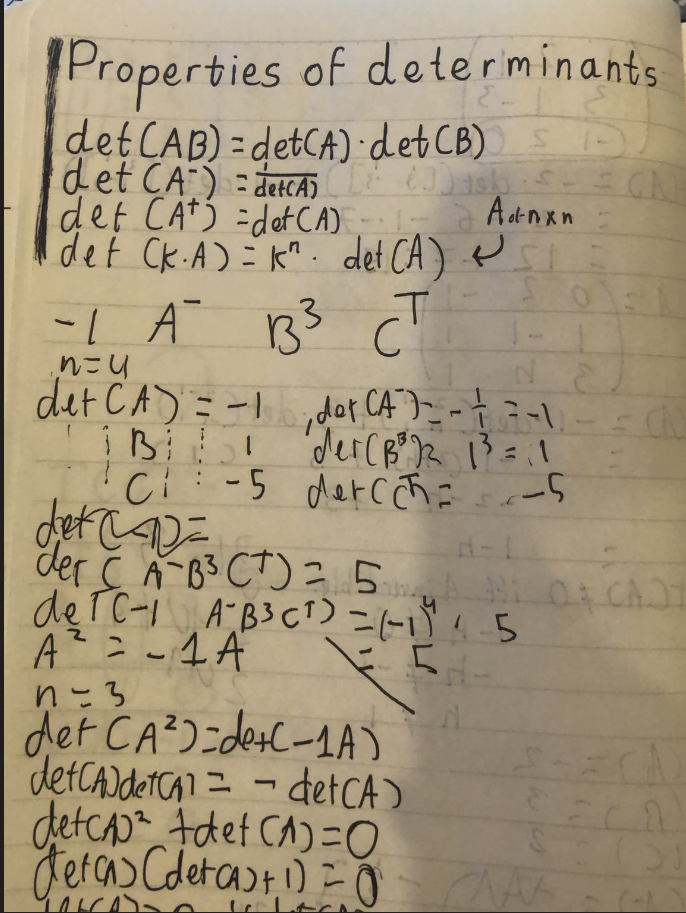 Properties of determinants
det(AB) = det(A) · det(B)
det(A⁻) = 1/det(A)
det(A^t) = det(A) A n×n
det(k·A) = kⁿ · det(A) ↙
-1 A⁻ B³ C^T
n=4
det(A) = -1 , det(A⁻) = -1/1 = -1
B 1 det(B³) = 1³ = 1
C -5 det(C^T) = -5
det(-1) =
det(A⁻B³C^T) = 5
det(-1 A⁻B³C^T) = (-1)⁴ · 5
A² = -1A = 5
n = 3
det(A²) = det(-1A)
det(A)det(A) = - det(A)
det(A)² + det(A) = 0
det(A)(det(A)+1) = 0